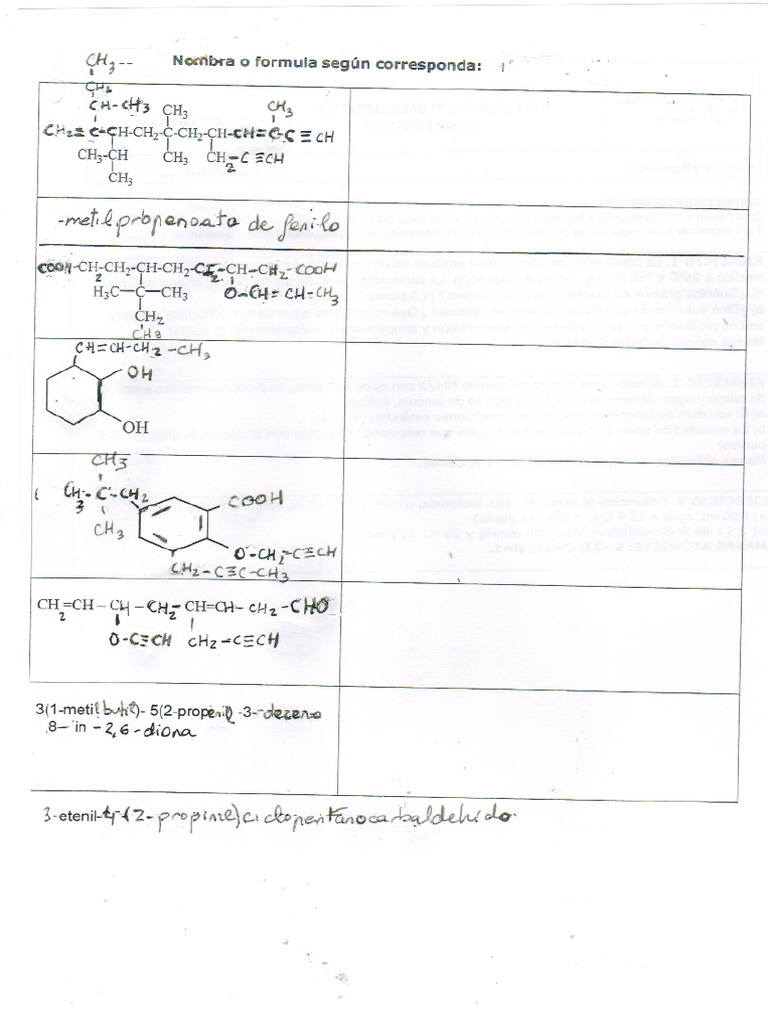 Nombra o formula según corresponda:
CH3
CH2
CH-CH3 CH3 CH3
CH2≡C-CH-CH2-C-CH2-CH-CH=C-C≡CH
CH3-CH CH3 CH2-C≡CH
CH3
-metilpropenoato de fenilo
COOH-CH2-CH2-CH-CH2-CH2-CH-CH2-COOH
H3C-C-CH3 O-CH=CH-CH3
CH2
CH3
CH=CH-CH2-CH3
OH
OH
CH3
CH3-C-CH2 COOH
CH3
O-CH2-C≡CH
CH2-C≡C-CH3
CH2=CH-CH-CH2-CH=CH-CH2-CHO
O-C≡CH CH2-C≡CH
3(1-metilbutil)- 5(2-propenil -3--deceno
8-in-2,6-diona
3-etenil-4-(2-propinil)ciclopentanocarbaldehido.